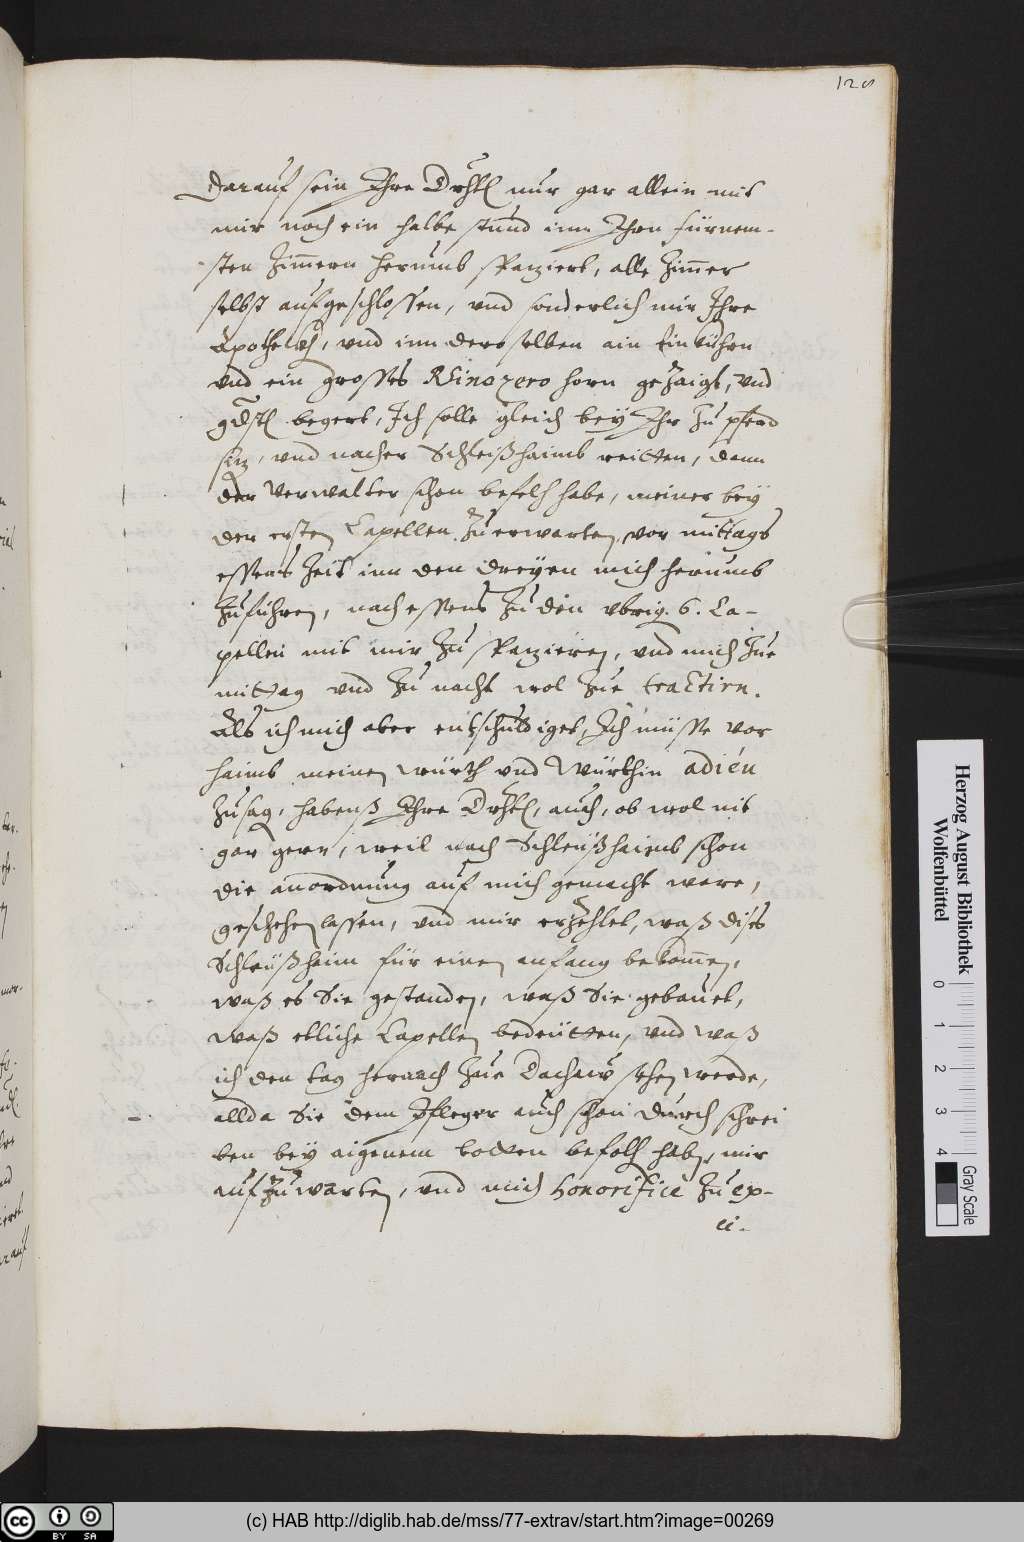 128
Darauf sein Ihre Drhl: nur gar allein mit
mir noch ein halbe stund inn Ihrn fürnem-
sten Zimern herumb spanziert, alle Zimer
selbst aufgeschlossen, vnd sonderlich mir Ihre
Apothekh, vnd inn derselben ain Einkhürn
vnd ein grosses Rinozero horn gezaigt, vnd
gdstl begert, Ich solle gleich bey Ihr zu pferd
siz, vnd nacher Schleißhaimb reitten, dann
der Verwalter schon befelh habe, meiner bey
der ersten Capellen zuerwarten, vor mittags
essens Zeit inn den dreyen mich herumb
zufihren, nach essens zu den vbrig. 6. Ca-
pellen mit mir zu spanzieren, vnd mich zue
mittag vnd zu nacht wol zue tractirn.
Als ich mich aber entschuldiget, Ich müsse vor
haimb meinen würth vnd Würthin adieu
zusag, habenß Ihre Drhl:, auch, ob wol nit
gar gern, weil nach Schleüßhaimb schon
die anordnung auf mich gemacht were,
geschehen lassen, vnd mir erzehlet, waß dises
Schleüßhaim für einen anfang bekomen,
waß es Sie gestanden, waß Sie gebauet,
waß etliche Capellen bedeütten, vnd waß
ich den tag hernach zue Dachaw sehen werde,
allda Sie dem Pfleger auch schon durch schrei
ben bey aigenem botten befolh hab, mir
aufzuwarten, vnd mich honorificè zu ex-
ci-
Herzog August Bibliothek
Wolfenbüttel
0 1 2 3 4
Gray Scale
cc BY SA
(c) HAB http://diglib.hab.de/mss/77-extrav/start.htm?image=00269